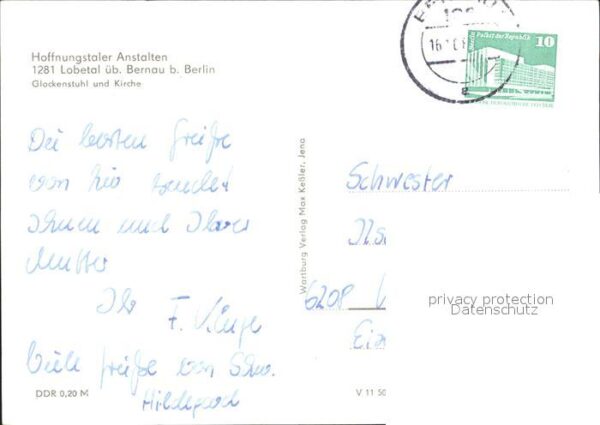 Hoffnungstaler Anstalten
1281 Lobetal üb. Bernau b. Berlin
Glockenstuhl und Kirche
Berlin Palast der Republik
10
16.10.
Die besten Grüße
von hier sendet
Ihnen und Ihrer
Mutter
Ihr
F.
Viele Grüße von Schw.
Hildegard
DDR 0,20 M
Wartburg Verlag Max Keßler, Jena
Schwester
6208
privacy protection
Datenschutz
V 11 50